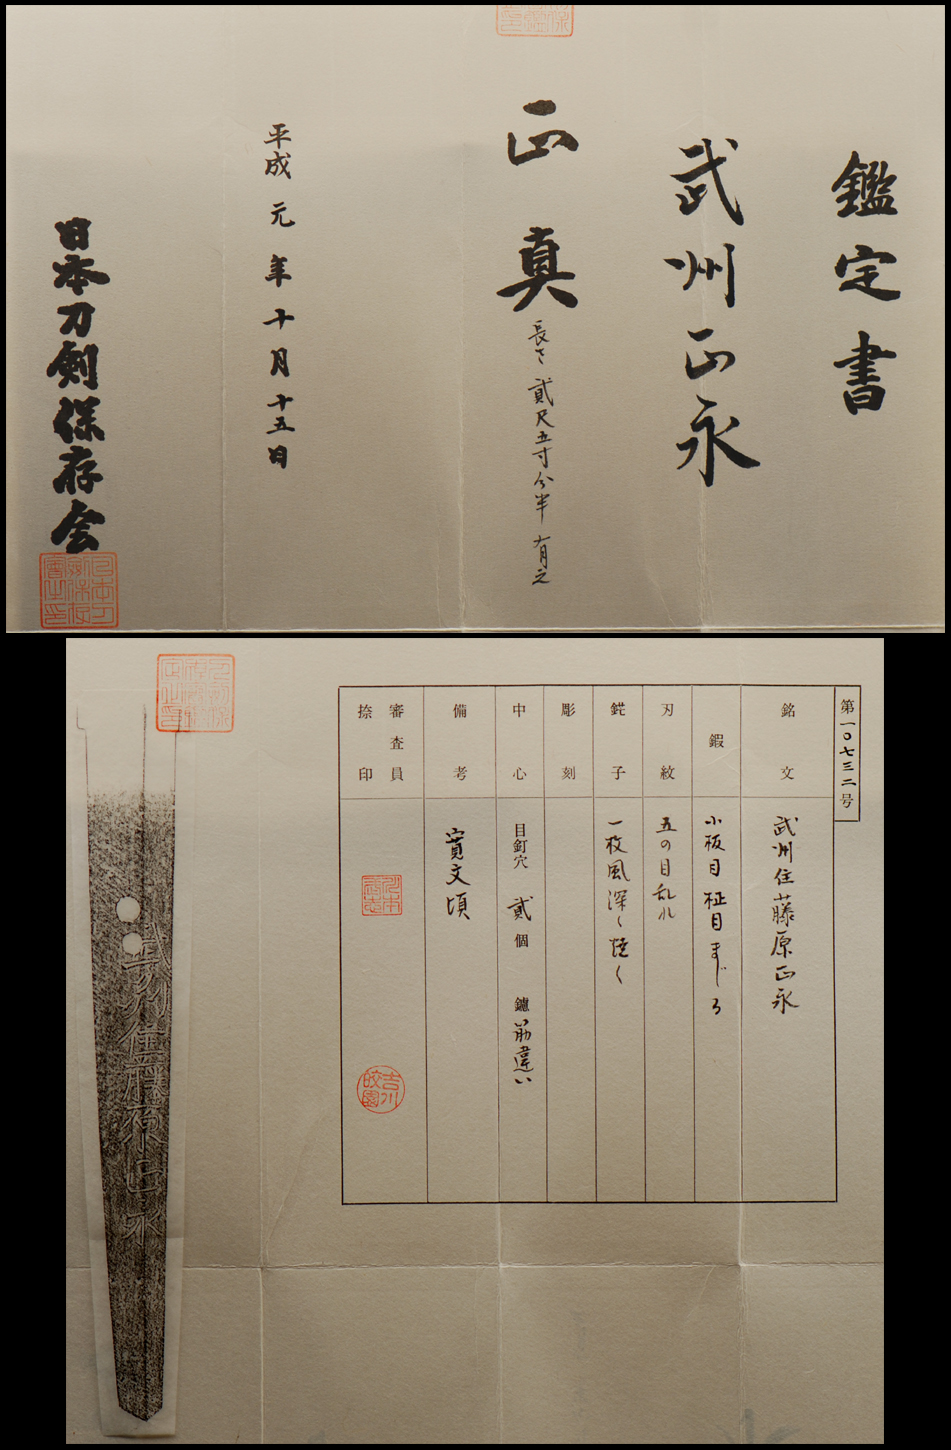 鑑定書
武州正永
正真
長さ 貳尺五寸分半 有之
平成元年十月十五日
日本刀剣保存会
第一〇七三二号
銘文
武州住藤原正永
鍜
小板目 柾目まじる
刃紋
五の目乱れ
鋩子
一枚風深く焼く
彫刻
中心
目釘穴 貳個 鑢 筋違い
備考
寛文頃
審査員
捺印
吉川皎園
武州住藤原正永